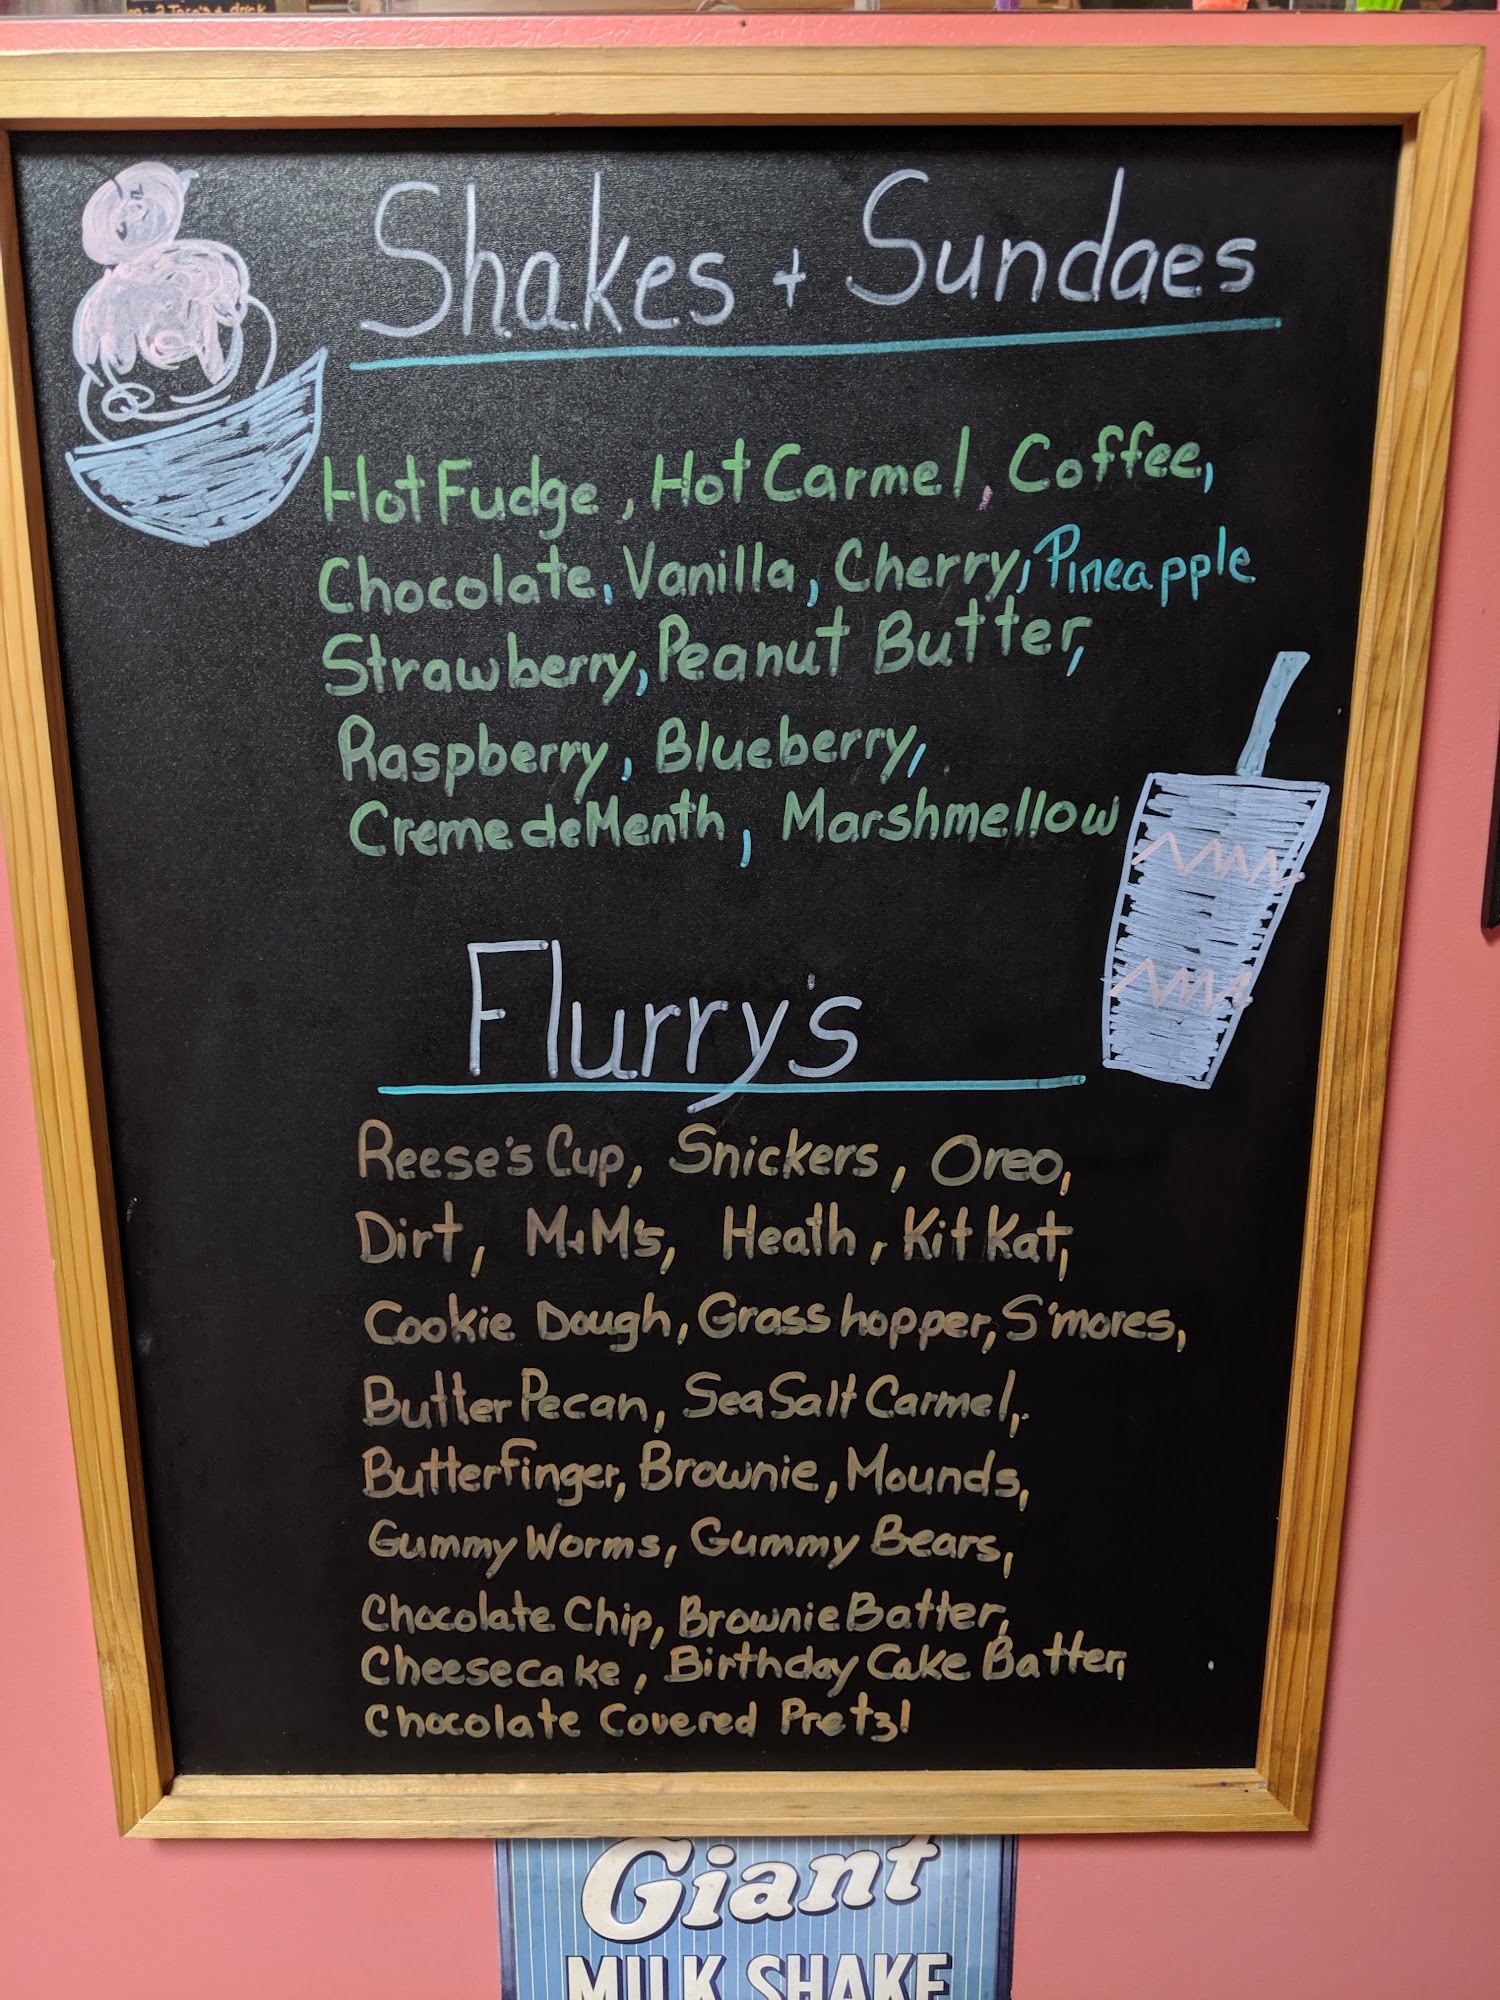 2 Taco's + drink
Shakes + Sundaes
Hot Fudge, Hot Carmel, Coffee,
Chocolate, Vanilla, Cherry, Pineapple
Strawberry, Peanut Butter,
Raspberry, Blueberry,
Creme de Menth, Marshmellow
Flurry's
Reese's Cup, Snickers, Oreo,
Dirt, M+M's, Heath, Kit Kat,
Cookie Dough, Grasshopper, S'mores,
Butter Pecan, Sea Salt Carmel,
Butterfinger, Brownie, Mounds,
Gummy Worms, Gummy Bears,
Chocolate Chip, Brownie Batter,
Cheesecake, Birthday Cake Batter,
Chocolate Covered Pretzl
Giant
MILK SHAKE